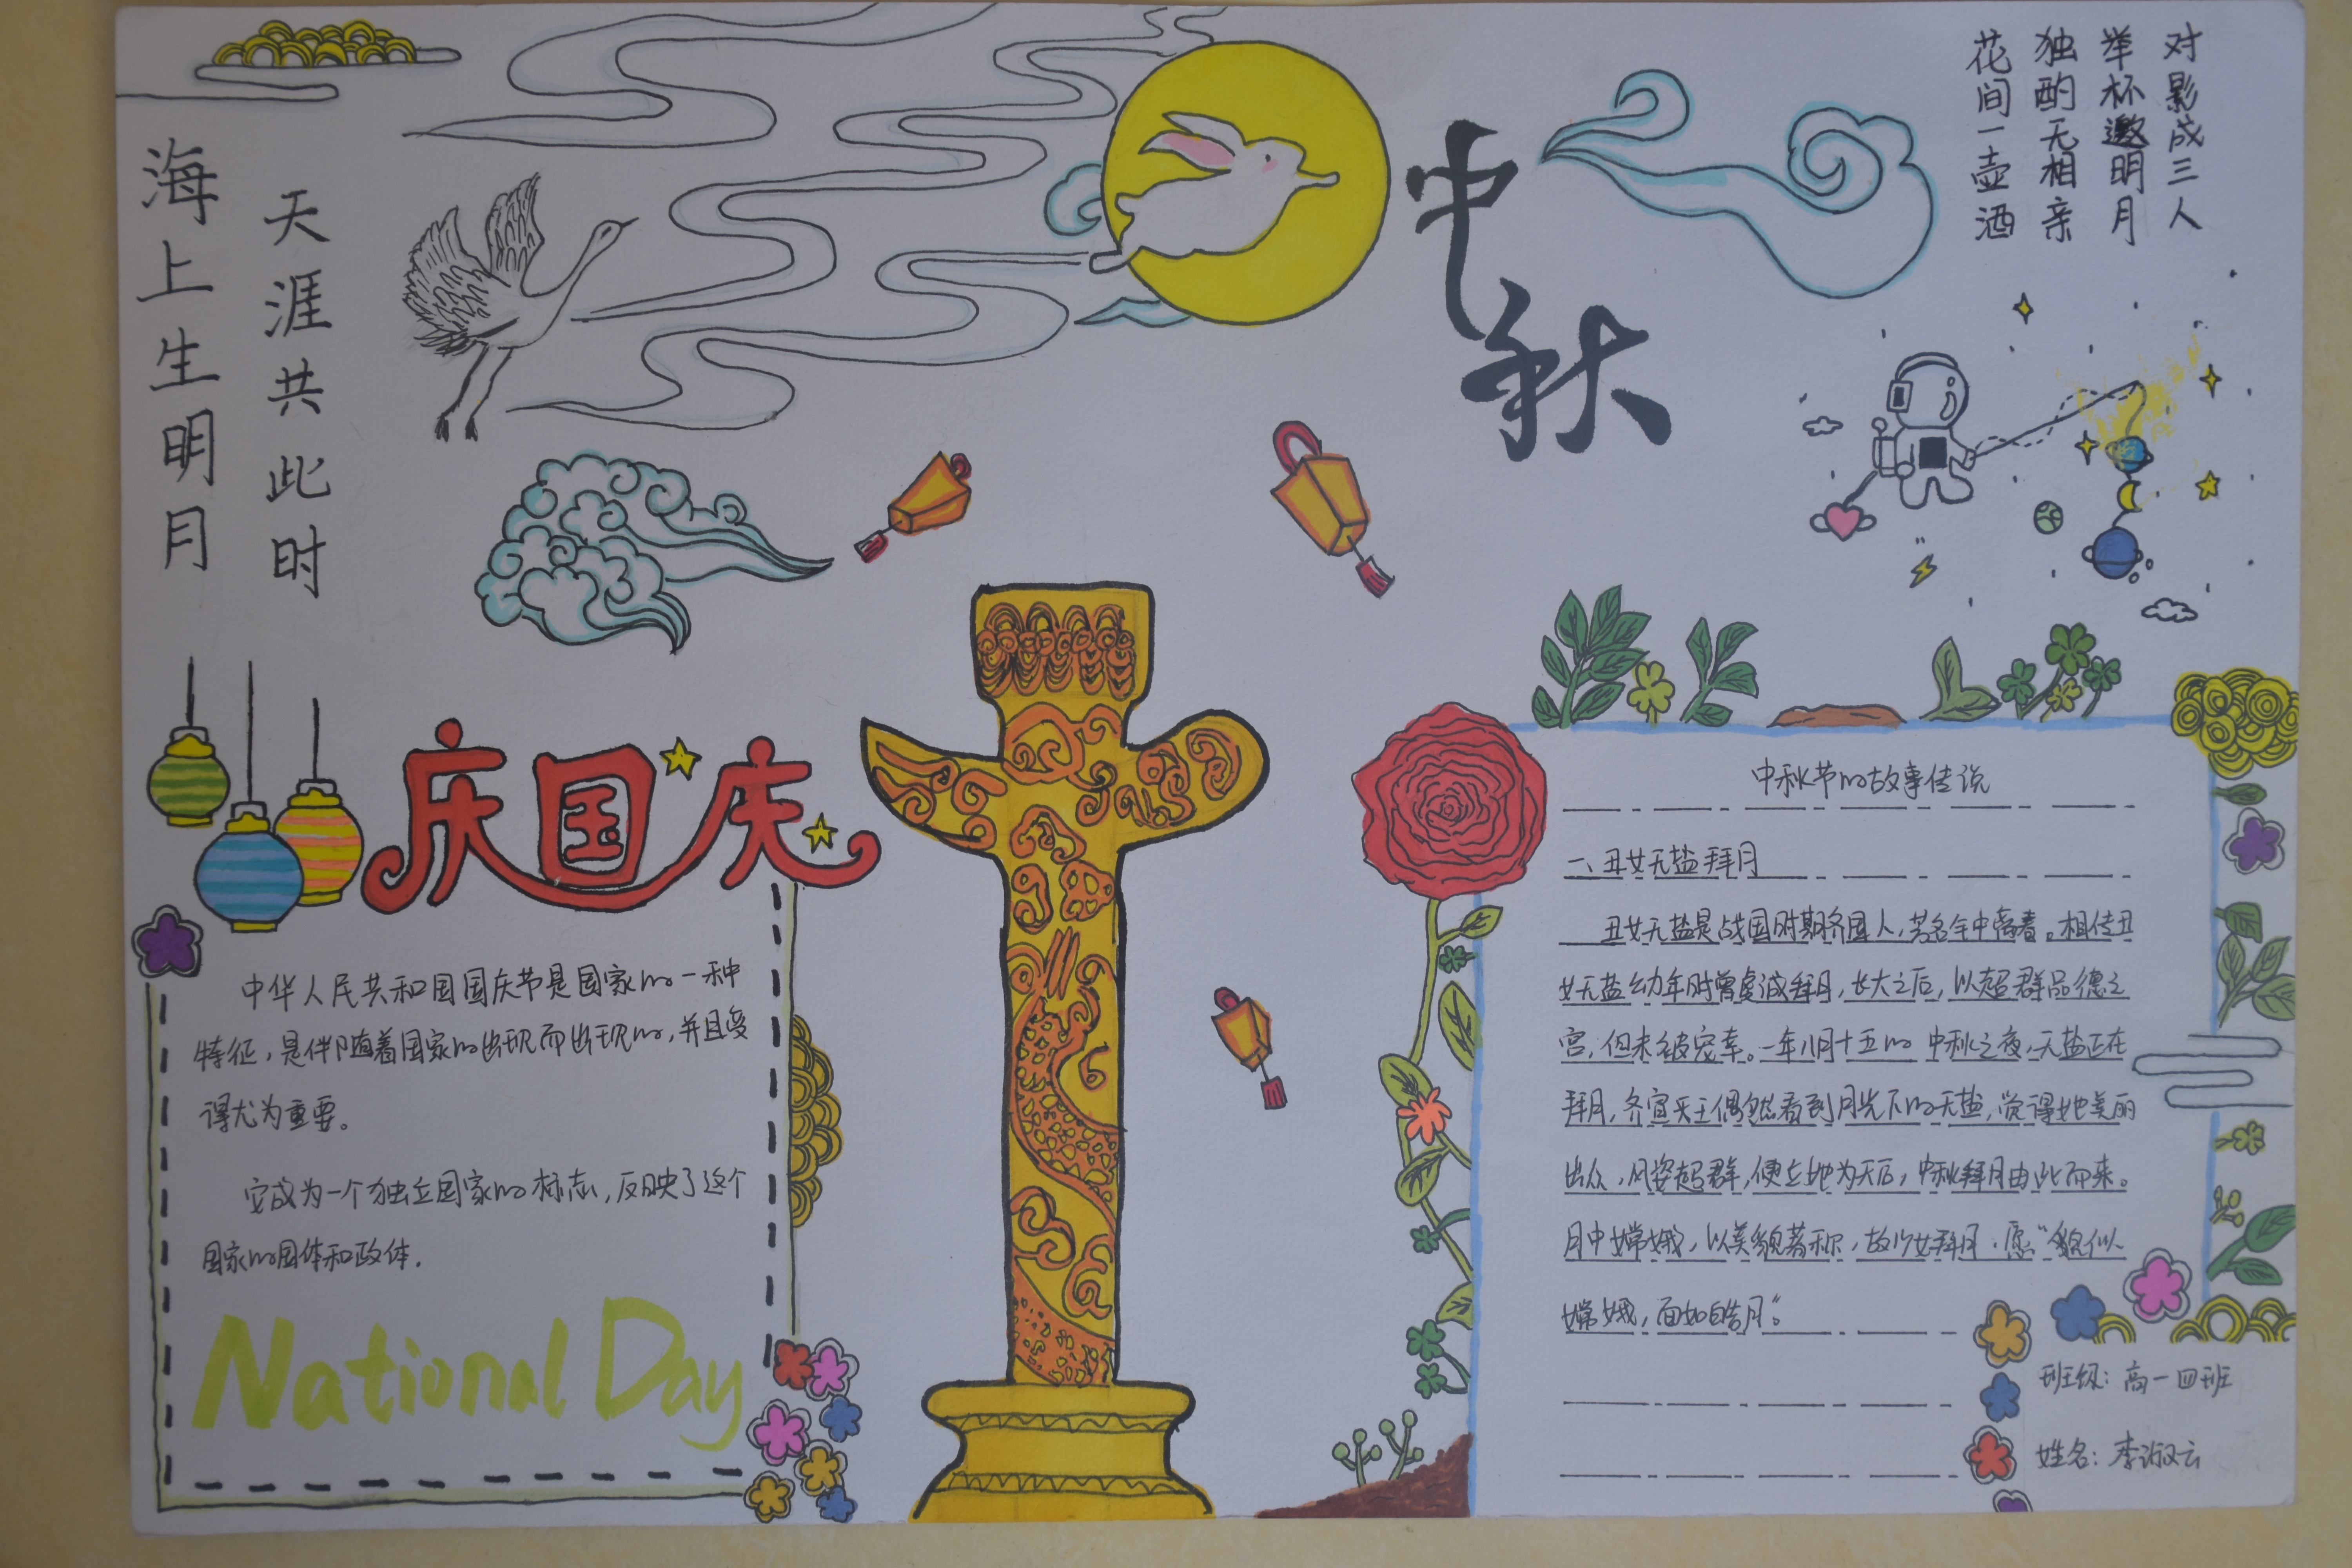 海上生明月
天涯共此时
中秋
对影成三人
举杯邀明月
独酌无相亲
花间一壶酒
庆国庆
中华人民共和国国庆节是国家的一种
特征，是伴随着国家的出现而出现的，并且变
得尤为重要。
它成为一个独立国家的标志，反映了这个
国家的国体和政体.
National Day
中秋节的故事传说
一、丑女无盐拜月
丑女无盐是战国时期齐国人，芳名钟离春。相传丑
女无盐幼年时曾虔诚拜月，长大之后，以超群品德之
宫，但未被宠幸。一年八月十五的中秋之夜，无盐正在
拜月，齐宣天王偶然看到月光下的无盐，觉得她美丽
出众，风姿超群，便立她为天后，中秋拜月由此而来。
月中嫦娥，以美貌著称，故少女拜月，愿“貌似
嫦娥，面如皓月”。
班级：高一四班
姓名：李淑云